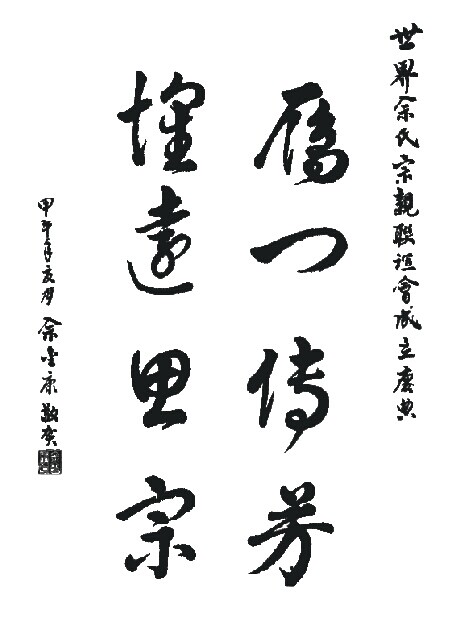 世界余氏宗親聯誼會成立慶典
雁門傳芳
懷遠思宗
甲午年亥月 余金康敬賀